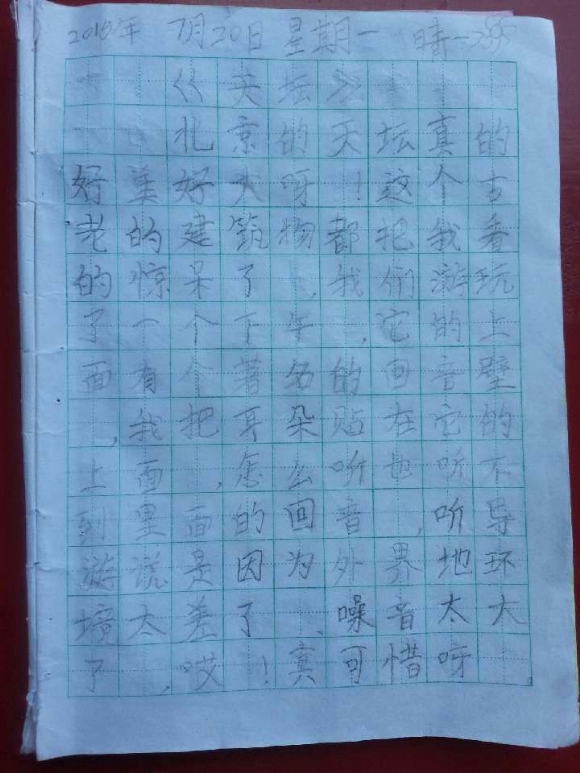 2018年 7月20日 星期一 晴
《天坛》
北京的天坛真的
好美好大呀！这个古
老的建筑物都把我看
的惊呆了，我们游玩
了一个下午，它的上
面有个著名的回音壁
，我把耳朵贴在它的
上面，怎么听也听不
到里面的回音，听导
游说是因为外界地环
境太差了，噪音太大
了，哎！真可惜呀，